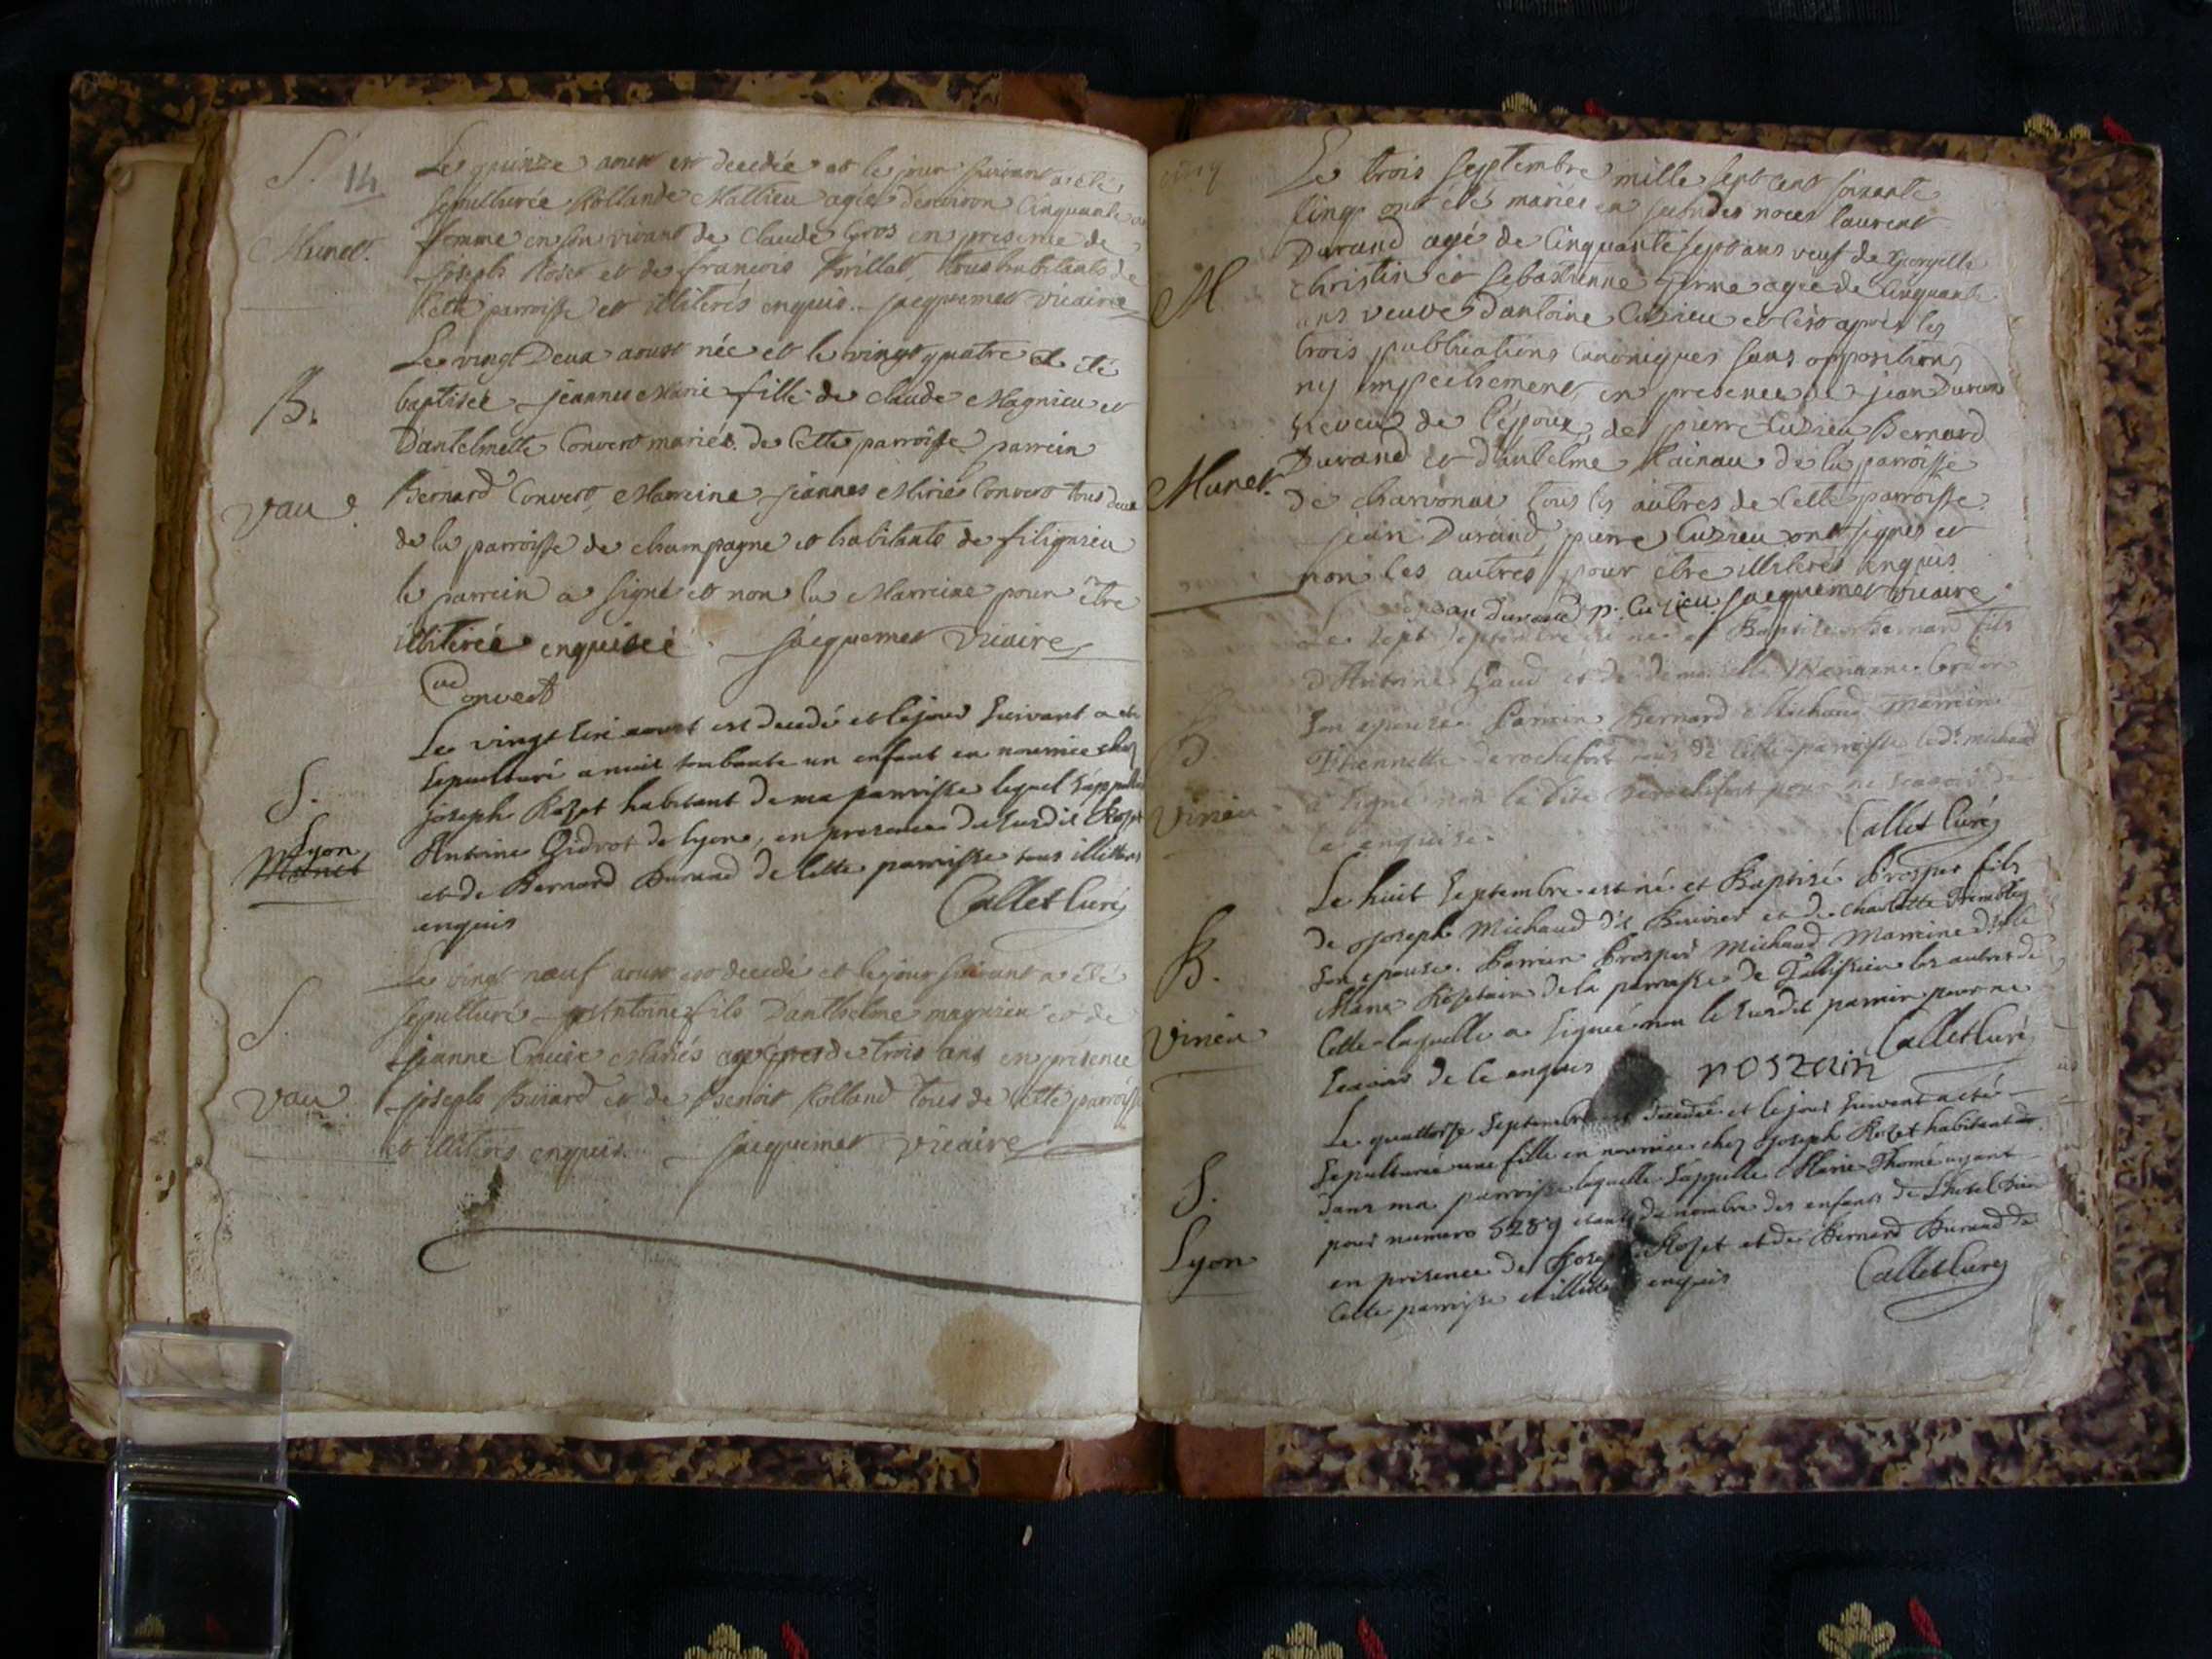 S. 14
Munet.
Le quinze aoust est decedée et le jour suivant a été
sepulturée Rollande Mathieu agée denviron cinquante
femme en son vivant de Claude Gros en presence de
Joseph Roset et de françois tous habitants de
cette parroisse et illiterés enquis. Jacquemet vicaire
B.
vau
Le vingt Deux aoust née et le vingt quatre a été
baptisée jeanne Marie fille de claude Magnieu et
D'antelmette Convert mariés de cette parroisse parrein
Bernard Convert, Marreine jeanne Marie Convert tous deux
de la parroisse de champagne et habitants de filignieu
le parrein a signé et non la Marreine pour être
illiterée enquisée Jacquemet vicaire
Convert
S.
Lyon
Munet
Le vingt six aoust est decedé et le jour suivant a été
sepulturé a nuit tombante un enfant en nourrice chez
joseph Rozet habitant de ma parroisse lequel s'appelle
Antoine Gidrot de lyon, en presence du susdit Rozet
et de Bernard Durand de cette parroisse tous illitteres
enquis Callet Curé
S.
vau
Le vingt neuf aoust est decedé et le jour suivant a été
sepulturé Antoine fils D'anthelme magnieu et de
jeanne Mariés agé de trois ans en présence
joseph et de Benoit Rolland tous de cette parroisse
et illiteres enquis. Jacquemet vicaire
M.
Munet.
Le trois septembre mille sept cent soixante
cinq ont été mariés en secondes noces laurent
Durand agé de cinquante sept ans veuf de
christin et sebastienne agée de cinquante
ans veuve d'antoine Cuzieu et ce après les
trois publications canoniques sans opposition
ny impechement, en presence de jean Durand
neveu de l'époux, de pierre Cuzieu Bernard
Durand et d'antelme de la parroisse
de charvonas tous les autres de cette parroisse.
jean Durand, pierre Cuzieu ont signés et
non les autres pour être illiterés enquis
jean durand p. Cuzieu Jacquemet vicaire
B.
Virieu
Le sept septembre est né et Baptisé Bernard fils
d'Antoine et de demoiselle Marianne Cordon
son epouse. Parrein Bernard Michaud marreine
de rochefort tous de cette parroisse le dt. michaud
a signé non la dite de rochefort pour ne scavoir de
ce enquise. Callet Curé
B.
Virieu
Le huit septembre est né et Baptisé Prosper fils
de Joseph Michaud dit et de charlotte Trembley
son epouse. Parrein Prosper Michaud Marreine dlle
Marie Rosetain de la parroisse de Tallissieu les autres de
cette laquelle a signée non le susdit parrein pour ne
scavoir de ce enquis Callet Curé
roszain
S.
Lyon
Le quattorze septembre est decedée et le jour suivent a été
sepulturée une fille en nourrice chez Joseph Rozet habitant
dans ma parroisse laquelle s'appelle Marie Thomé ayant
pour numero 5289 etant du nombre des enfants de L'hotel Dieu
en presence de Joseph Rozet et de Bernard Durand de
Cette parroisse et illitteres enquis Callet Curé